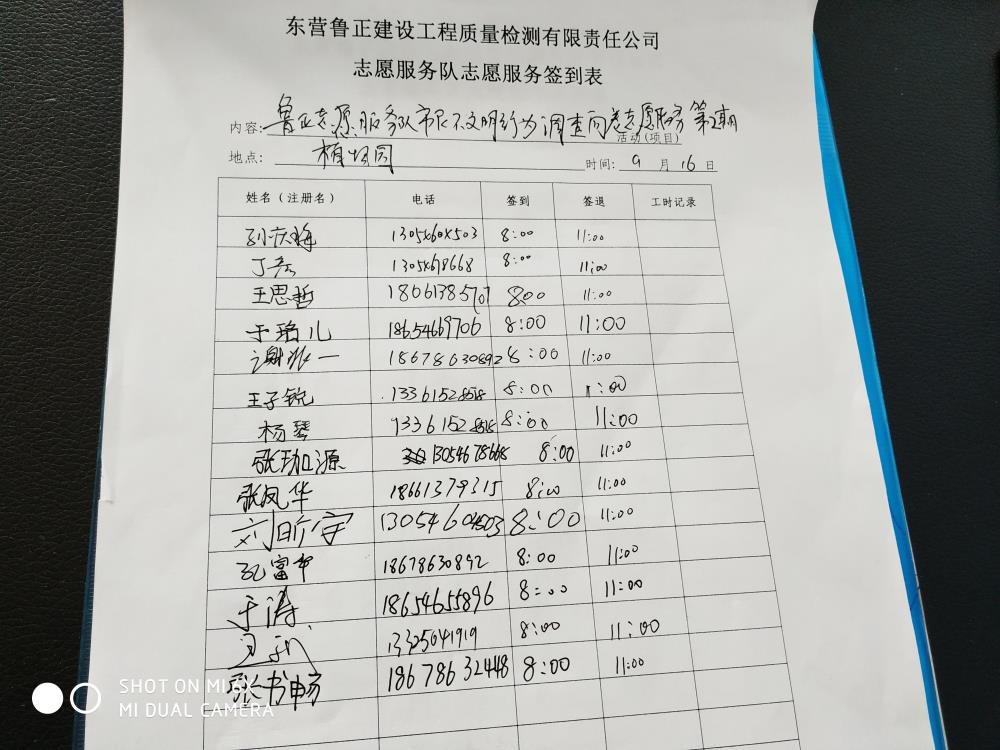 东营鲁正建设工程质量检测有限责任公司
志愿服务队志愿服务签到表
内容: 鲁正志愿服务队市民不文明行为调查问卷志愿服务第 期
活动(项目)
地点: 植物园 时间: 9 月 16 日
姓名（注册名） 电话 签到 签退 工时记录
孙庆梅 8:00 11:00
丁 8:00 11:00
王思哲 18061385707 8:00 11:00
于珞儿 18654669706 8:00 11:00
谢 一 18678630892 8:00 11:00
王子锐 13361528518 8:00 11:00
杨琴 13361528518 8:00 11:00
张珈源 13054678668 8:00 11:00
张凤华 18661379315 8:00 11:00
刘昕宇 8:00 11:00
富 18678630892 8:00 11:00
于涛 18654655896 8:00 11:00
8:00 11:00
张书畅 18678632448 8:00 11:00
SHOT ON MI 6X
MI DUAL CAMERA